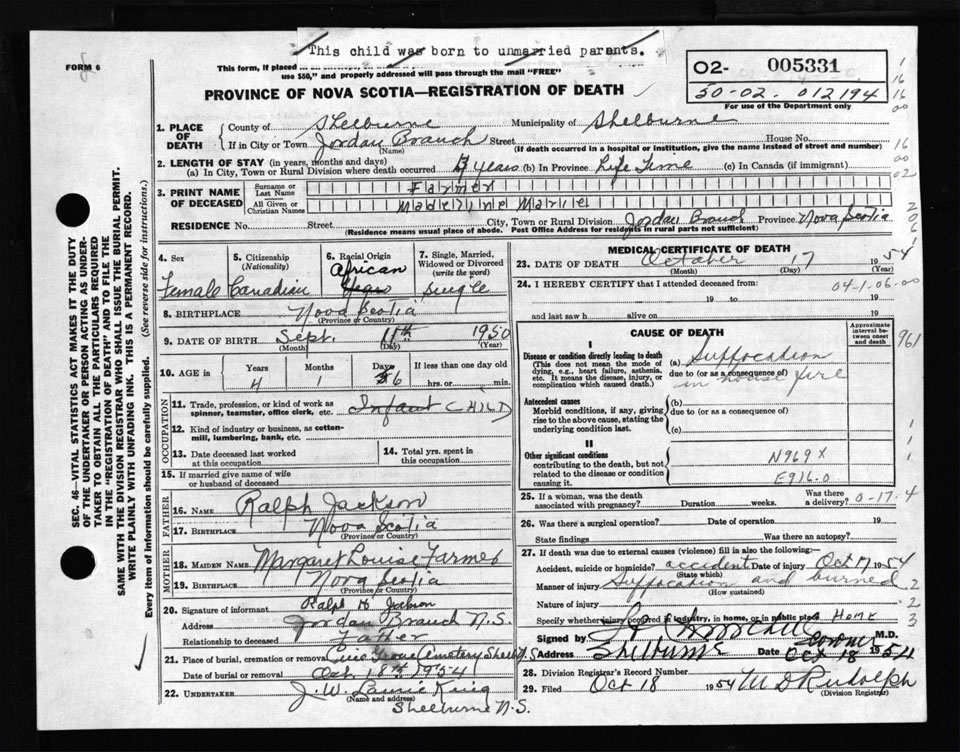 This child was born to unmarried parents.
FORM 6
This form, if placed
use $50," and properly addressed will pass through the mail "FREE"
O2- 005331
50-02. 012194
For use of the Department only
PROVINCE OF NOVA SCOTIA—REGISTRATION OF DEATH
1. PLACE OF DEATH County of Shelburne Municipality of Shelburne
If in City or Town Jordan Branch (Name) Street House No.
(If death occurred in a hospital or institution, give the name instead of street and number)
2. LENGTH OF STAY (in years, months and days)
(a) In City, Town or Rural Division where death occurred years (b) In Province Life Time (c) In Canada (if immigrant)
3. PRINT NAME OF DECEASED Surname or Last Name Farmer
All Given or Christian Names Madeline Marie
RESIDENCE No. Street City, Town or Rural Division Jordan Branch Province Nova Scotia
(Residence means usual place of abode. Post Office Address for residents in rural parts not sufficient)
4. Sex Female
5. Citizenship (Nationality) Canadian
6. Racial Origin African
7. Single, Married, Widowed or Divorced (write the word) Single
8. BIRTHPLACE Nova Scotia
(Province or Country)
9. DATE OF BIRTH Sept. 11th 1950
(Month) (Day) (Year)
10. AGE in Years Months Days If less than one day old
4 1 6 hrs. or min.
OCCUPATION
11. Trade, profession, or kind of work as spinner, teamster, office clerk, etc. Infant CHILD
12. Kind of industry or business, as cotton-mill, lumbering, bank, etc.
13. Date deceased last worked at this occupation
14. Total yrs. spent in this occupation
15. If married give name of wife or husband of deceased
FATHER
16. NAME Ralph Jackson
17. BIRTHPLACE Nova Scotia
(Province or Country)
MOTHER
18. MAIDEN NAME Margaret Louise Farmer
19. BIRTHPLACE Nova Scotia
(Province or Country)
20. Signature of informant Ralph H Jackson
Address Jordan Branch N.S.
Relationship to deceased Father
21. Place of burial, cremation or removal Grove Cemetery Shelb. N.S
Date of burial or removal Oct. 18th 1954
22. UNDERTAKER J. W. Laurie King
(Name and address)
Shelburne N.S.
MEDICAL CERTIFICATE OF DEATH
23. DATE OF DEATH October 17 1954
(Month) (Day) (Year)
24. I HEREBY CERTIFY that I attended deceased from
04-1.06.00
19 to 19
and last saw h alive on 19
CAUSE OF DEATH
Approximate interval between onset and death
961
I
Disease or condition directly leading to death (a) Suffocation
(This does not mean the mode of dying, e.g., heart failure, asthenia, etc. It means the disease, injury, or complication which caused death.)
due to (or as a consequence of) in house fire
Antecedent causes
Morbid conditions, if any, giving rise to the above cause, stating the underlying condition last.
(b)
due to (or as a consequence of)
(c)
II
Other significant conditions contributing to the death, but not related to the disease or condition causing it.
N969X
E916.0
25. If a woman, was the death associated with pregnancy? Duration weeks. Was there a delivery?
0-17.4
26. Was there a surgical operation? Date of operation 19
State findings Was there an autopsy?
27. If death was due to external causes (violence) fill in also the following:—
Accident, suicide or homicide? accident Date of injury Oct 17 1954
(State which)
Manner of injury Suffocation and burned
(How sustained)
Nature of injury
Specify whether injury occurred in industry, in home, or in public place Home
Signed by M.D.
Address Shelburne Date Oct 18 1954
28. Division Registrar's Record Number
29. Filed Oct 18 1954 M D Rudolph
(Division Registrar)
SEC. 46—VITAL STATISTICS ACT MAKES IT THE DUTY OF THE UNDERTAKER OR PERSON ACTING AS UNDERTAKER TO OBTAIN ALL THE PARTICULARS REQUIRED IN THE "REGISTRATION OF DEATH" AND TO FILE THE SAME WITH THE DIVISION REGISTRAR WHO SHALL ISSUE THE BURIAL PERMIT.
WRITE PLAINLY WITH UNFADING INK. THIS IS A PERMANENT RECORD.
Every item of information should be carefully supplied. (See reverse side for instructions.)